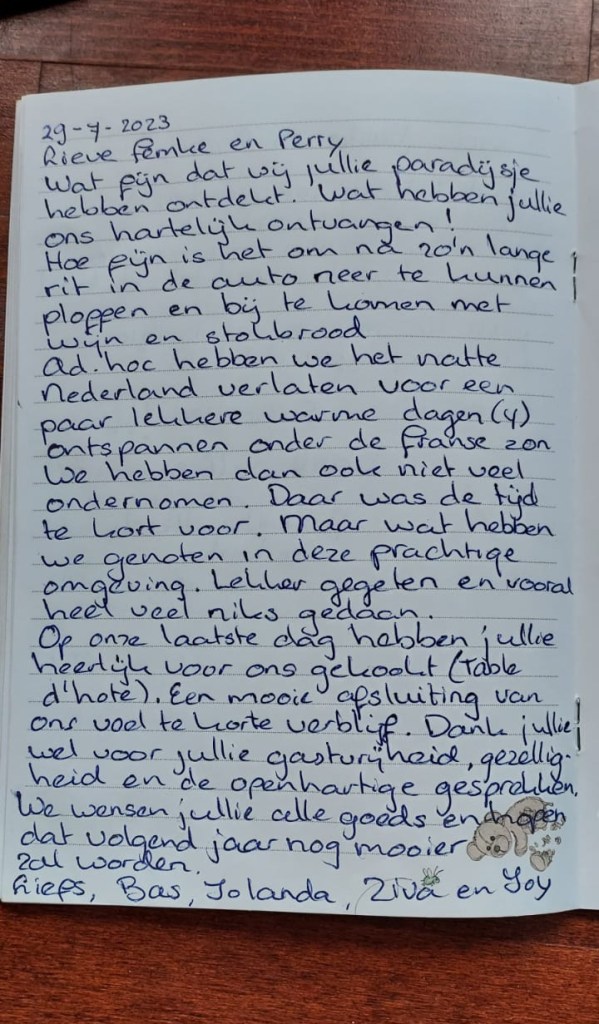 29-7-2023
Lieve Femke en Perry
Wat fijn dat wij jullie paradijsje
hebben ontdekt. Wat hebben jullie
ons hartelijk ontvangen!
Hoe fijn is het om na zo'n lange
rit in de auto neer te kunnen
ploffen en bij te komen met
wijn en stokbrood
Ad.hoc hebben we het natte
Nederland verlaten voor een
paar lekkere warme dagen (4)
ontspannen onder de franse zon
We hebben dan ook niet veel
ondernomen. Daar was de tijd
te kort voor. Maar wat hebben
we genoten in deze prachtige
omgeving. Lekker gegeten en vooral
heel veel niks gedaan.
Op onze laatste dag hebben jullie
heerlijk voor ons gekookt (Table
d'hote). Een mooie afsluiting van
ons veel te korte verblijf. Dank jullie
wel voor jullie gastvrijheid, gezellig-
heid en de openhartige gesprekken.
We wensen jullie alle goeds en hopen
dat volgend jaar nog mooier
zal worden.
Liefs, Bas, Jolanda, Ziva en Joy